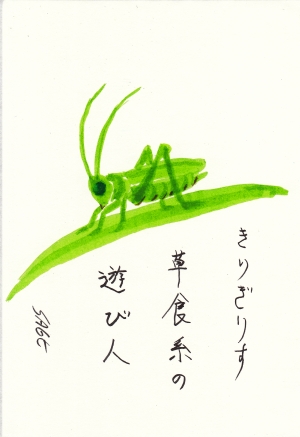 きりぎりす
草食系の
遊び人